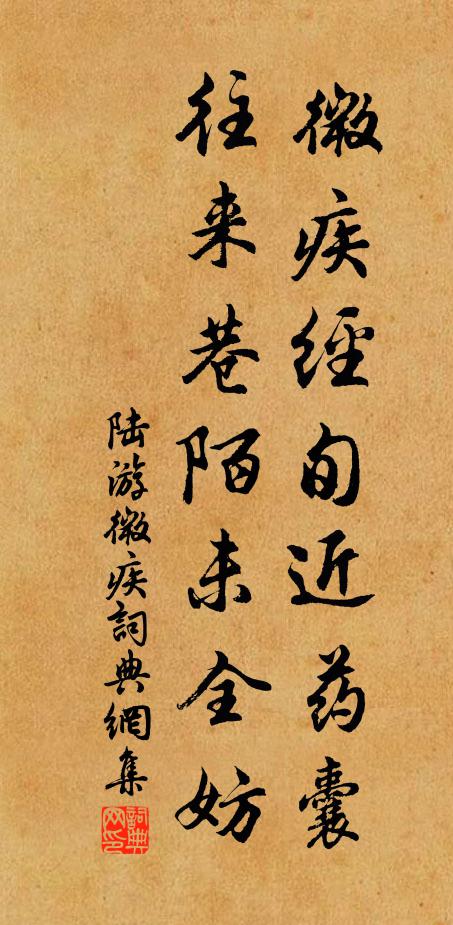 微疾經旬近药囊
往来巷陌未全妨
陆游微疾詞典網集
詞典网印